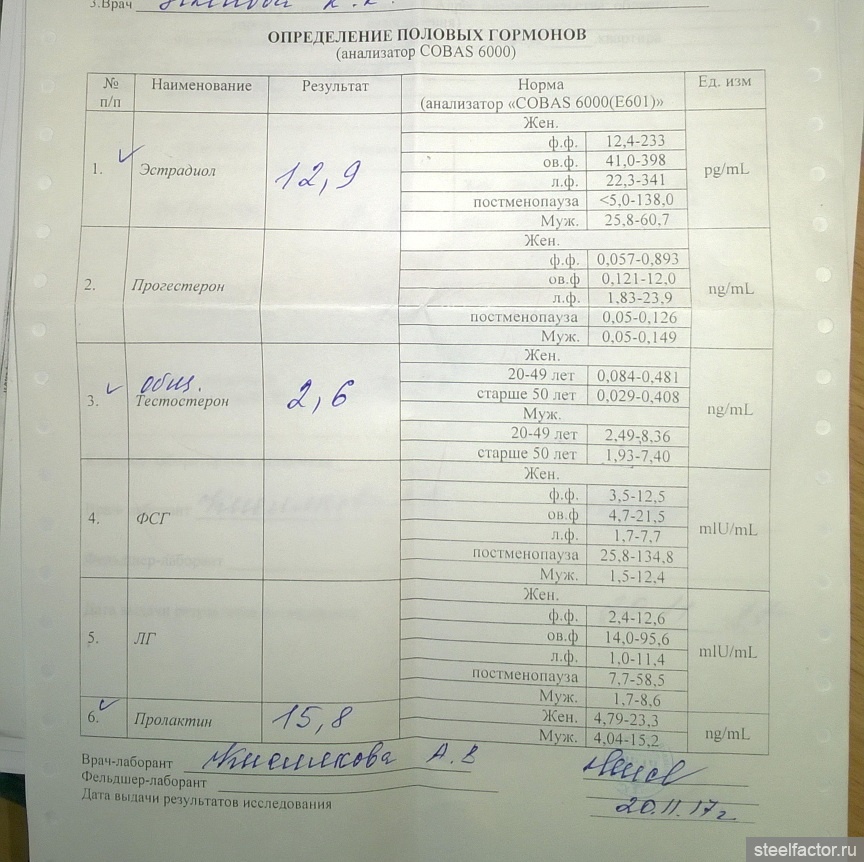 3.Врач
ОПРЕДЕЛЕНИЕ ПОЛОВЫХ ГОРМОНОВ
(анализатор COBAS 6000)
№ п/п Наименование Результат Норма (анализатор «COBAS 6000(E601)» Ед. изм
1. Эстрадиол 12,9 pg/mL
Жен.
ф.ф. 12,4-233
ов.ф. 41,0-398
л.ф. 22,3-341
постменопауза <5,0-138,0
Муж. 25,8-60,7
2. Прогестерон ng/mL
Жен.
ф.ф. 0,057-0,893
ов.ф 0,121-12,0
л.ф. 1,83-23,9
постменопауза 0,05-0,126
Муж. 0,05-0,149
3. общ. Тестостерон 2,6 ng/mL
Жен.
20-49 лет 0,084-0,481
старше 50 лет 0,029-0,408
Муж.
20-49 лет 2,49-8,36
старше 50 лет 1,93-7,40
4. ФСГ mlU/mL
Жен.
ф.ф. 3,5-12,5
ов.ф 4,7-21,5
л.ф. 1,7-7,7
постменопауза 25,8-134,8
Муж. 1,5-12,4
5. ЛГ mlU/mL
Жен.
ф.ф. 2,4-12,6
ов.ф 14,0-95,6
л.ф. 1,0-11,4
постменопауза 7,7-58,5
Муж. 1,7-8,6
6. Пролактин 15,8 ng/mL
Жен. 4,79-23,3
Муж. 4,04-15,2
Врач-лаборант А. В
Фельдшер-лаборант
Дата выдачи результатов исследования
20.11.17г
steelfactor.ru